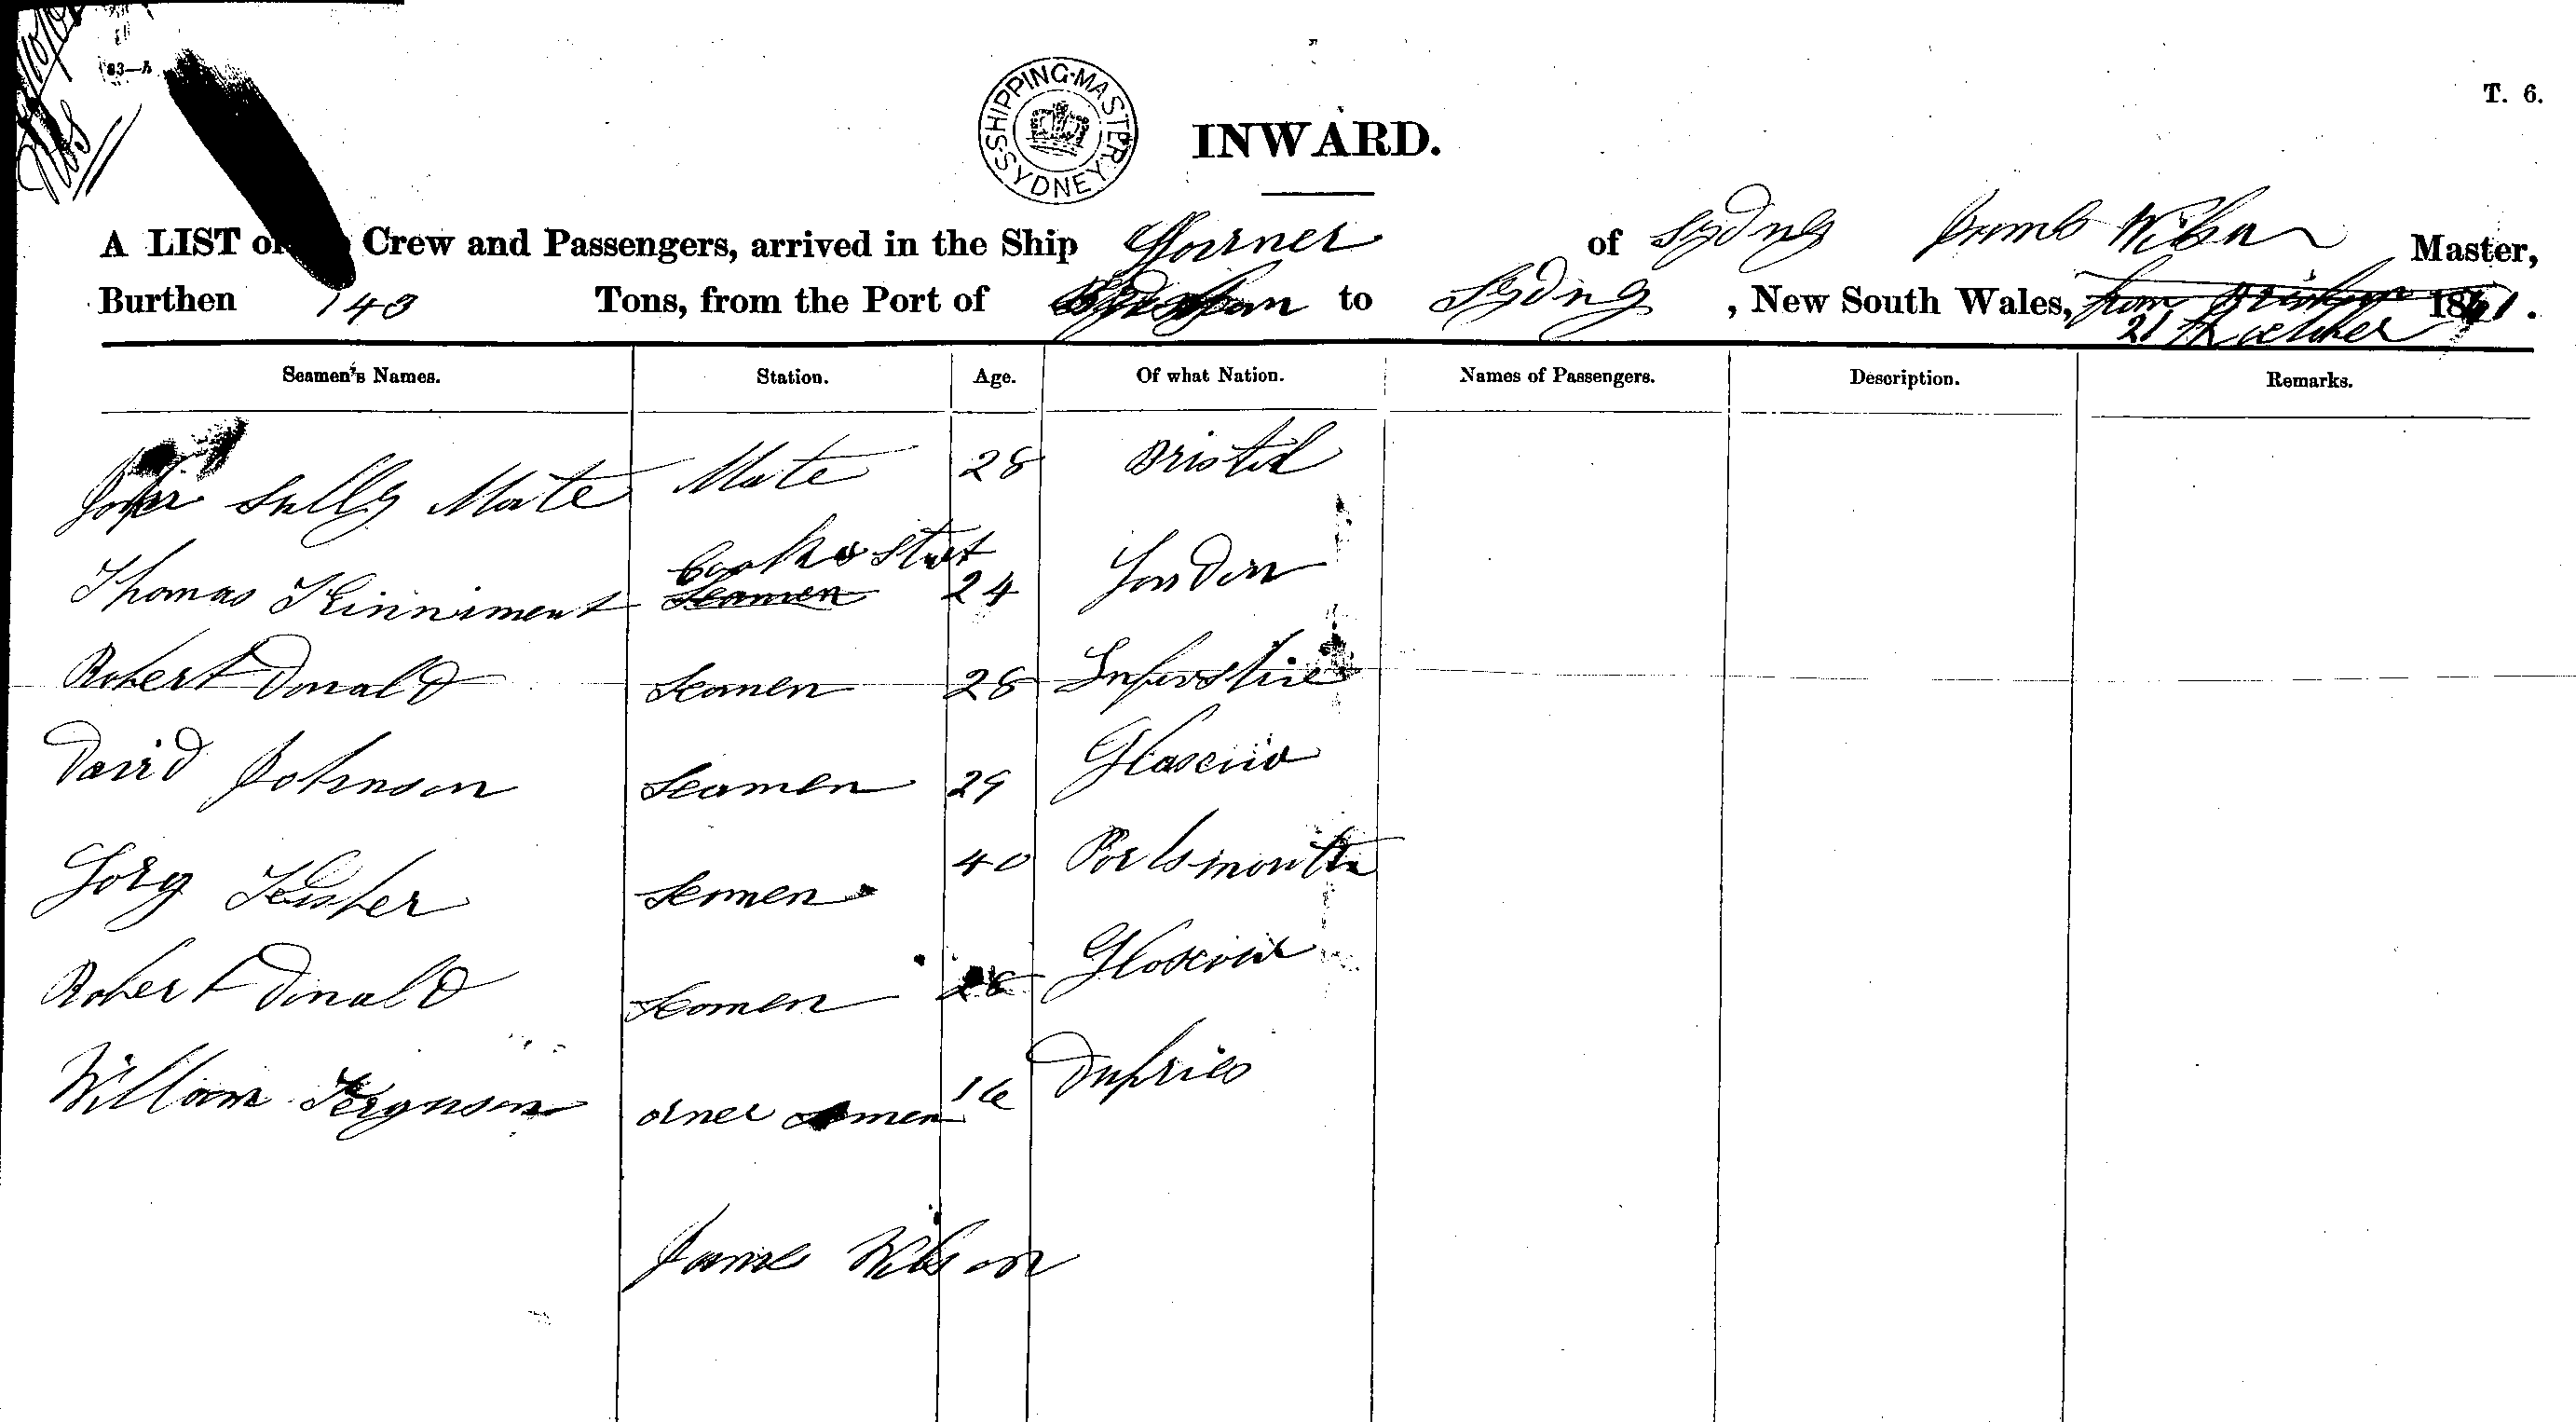 83—A
T. 6.
SHIPPING-MASTER-SYDNEY
INWARD.
A LIST of Crew and Passengers, arrived in the Ship of Sydny James Wilson Master,
Burthen 143 Tons, from the Port of to Sydny, New South Wales, 21 October 1861.
Seamen's Names. Station. Age. Of what Nation. Names of Passengers. Description. Remarks.
John Sully Mate Mate 28 Bristol
Cook & Stut
Thomas Kinniment Seamen 24 London
Robert Donald Seamen 28
David Johnson Seamen 29 Glascow
Gorg Seamen 40 Portsmouth
Robert Donald Seamen 28 Gloscow
William Ferguson 16 Dufries
James Wilson